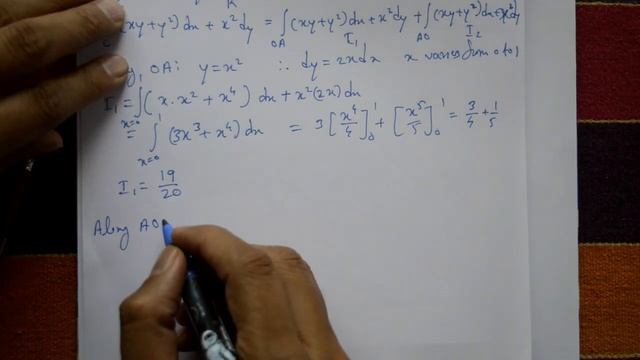 ∫(xy+y²)dx + x²dy = ∫OA (xy+y²)dx+x²dy + ∫AO (xy+y²)dx+x²dy
I₁ I₂
OA: y=x² ∴ dy = 2xdx x varies from 0 to 1
I₁ = ∫(x.x² + x⁴) dx + x²(2x)dx
x=0
= ∫ x=0 1 (3x³+x⁴)dx = 3[x⁴/4]₀¹ + [x⁵/5]₀¹ = 3/4 + 1/5
I₁ = 19/20
Along AO